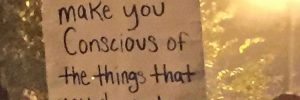 make you
Conscious of
the things that